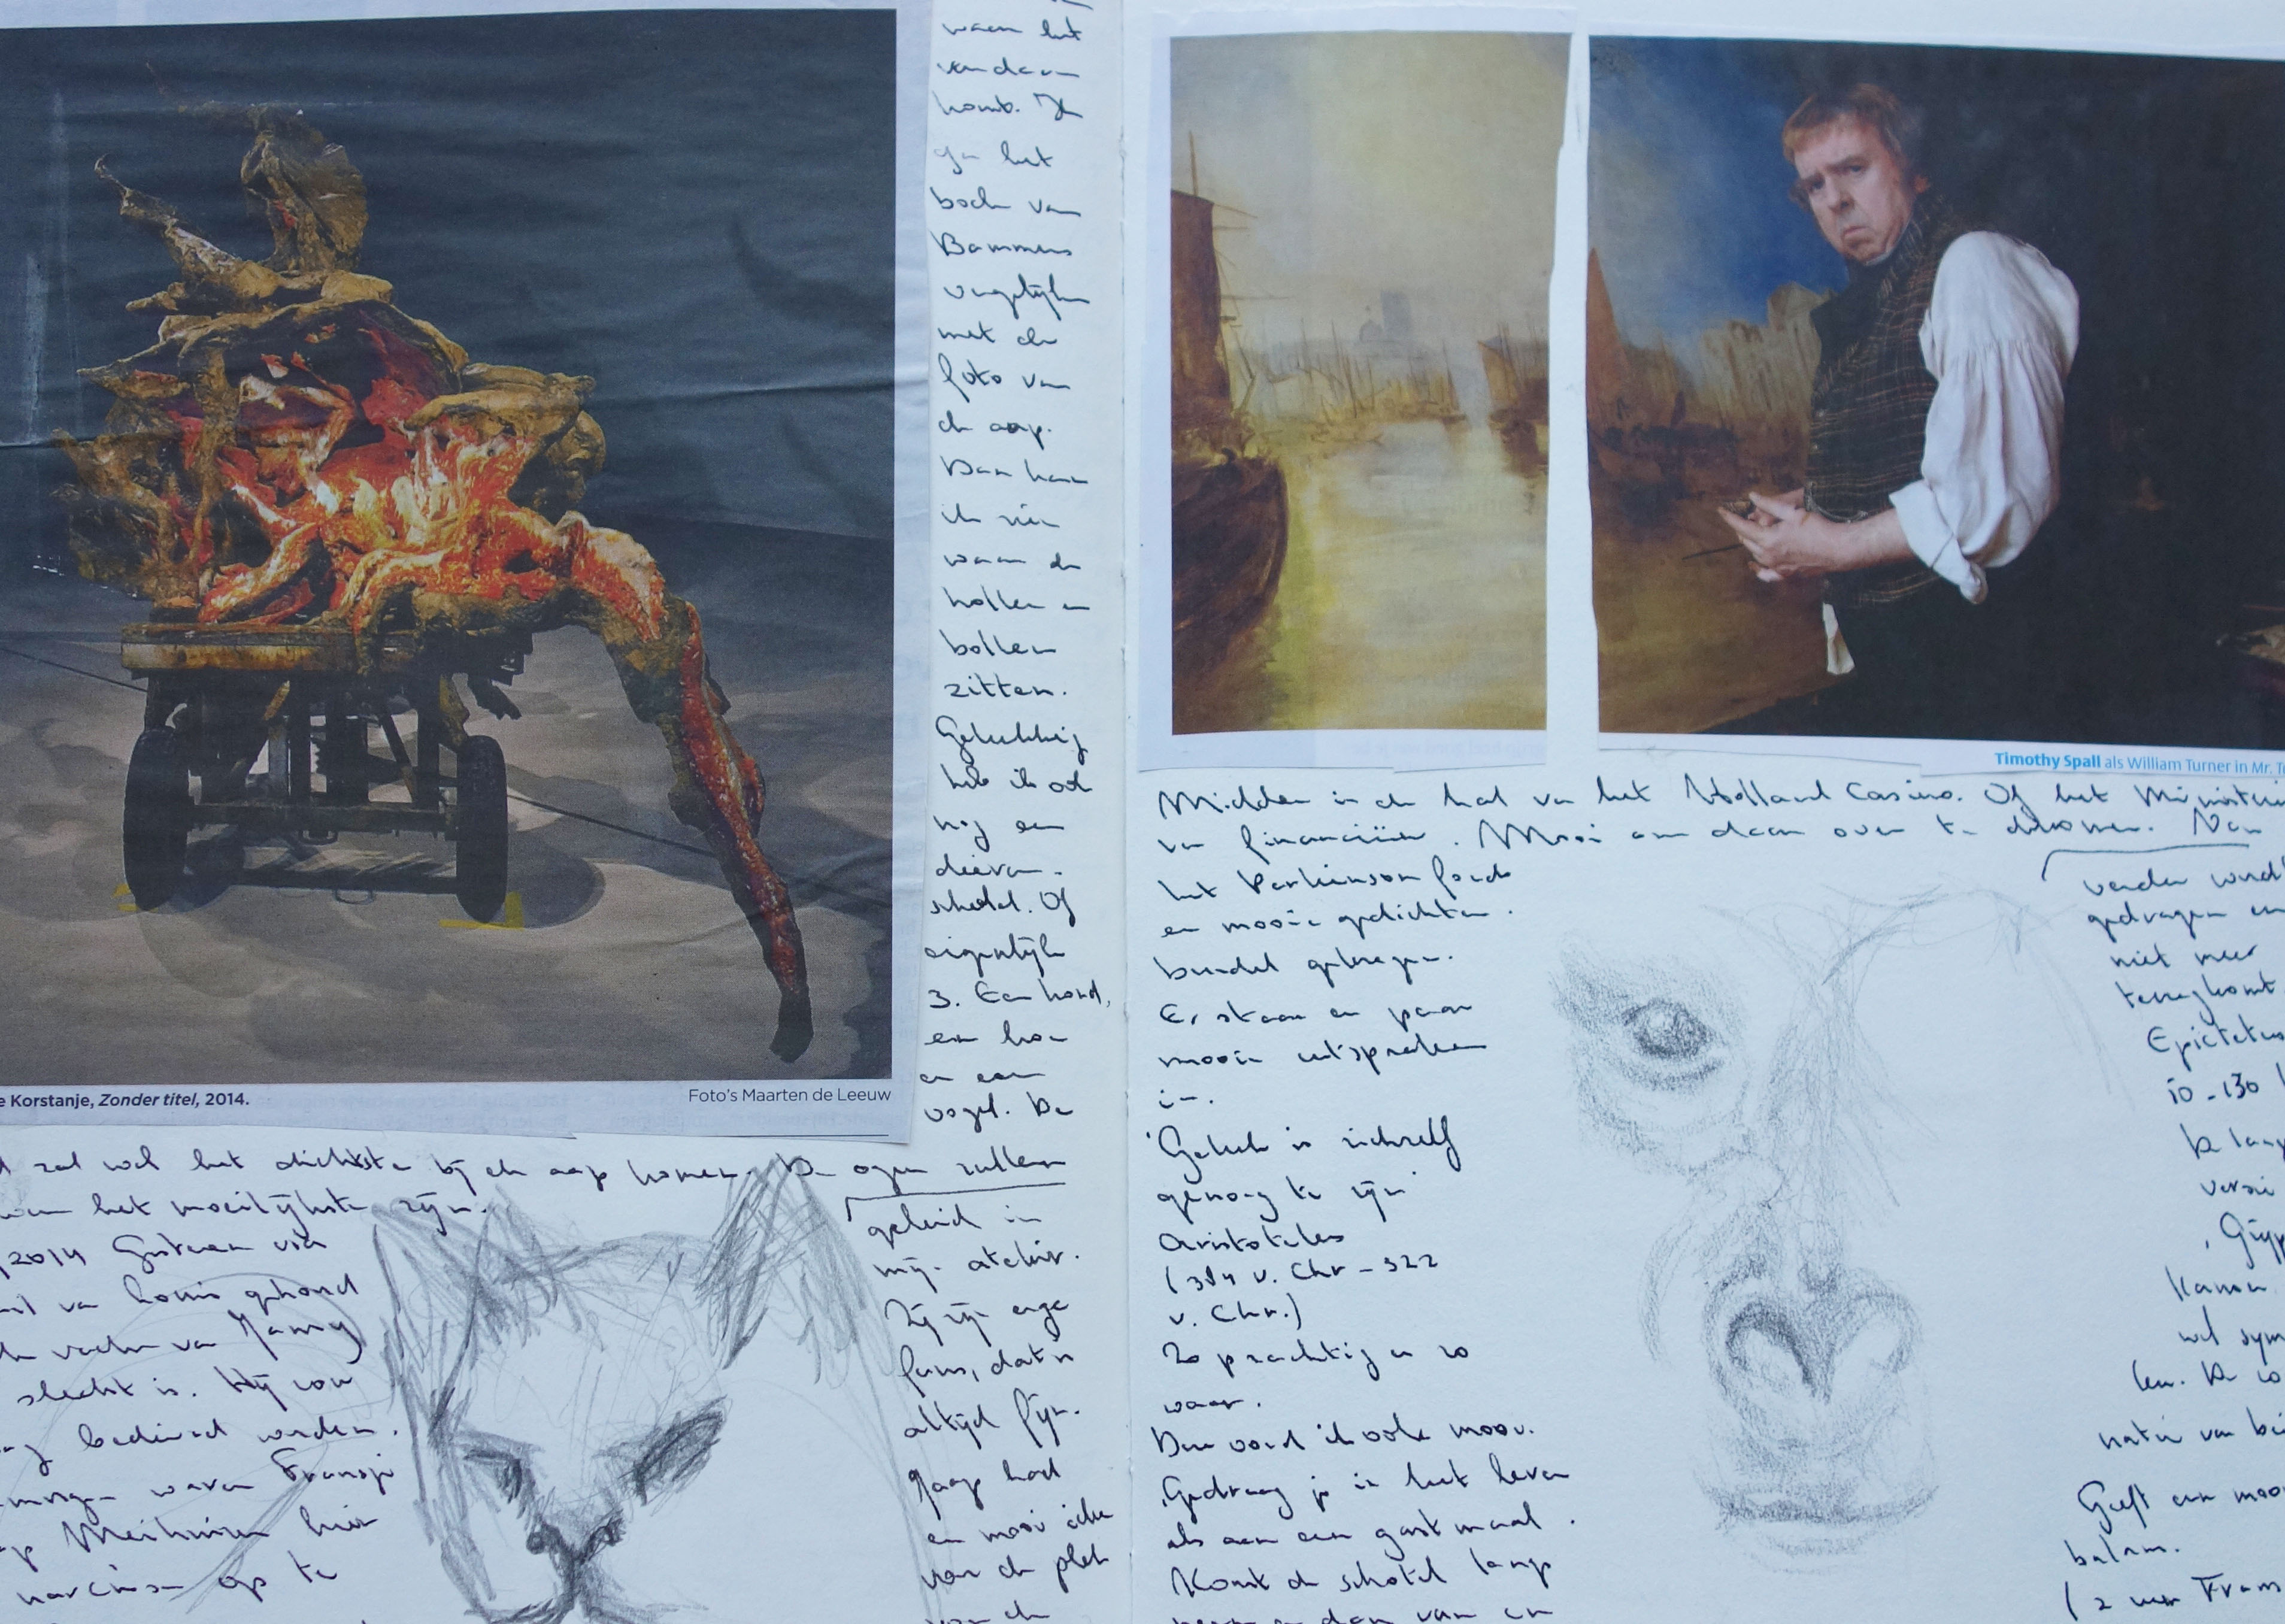 waar het
vandaan
komt. Ik
ga het
boek van
Bammes
vergelijken
met de
foto van
de aap.
Dan kan
ik zien
waar de
hollen en
bollen
zitten.
Gelukkig
heb ik ook
nog een
dieren-
schedel. Of
eigenlijk
3. Een hond,
een
en een
vogel. De
e Korstanje, Zonder titel, 2014.
Foto's Maarten de Leeuw
zal wel het dichtste bij de aap komen. De ogen zullen
het moeilijkste zijn.
2014 Gisteren via
van Louis gehoord
van Janny
slecht is. Hij zou
bediend worden.
waren Fransje
hier
narcissen op te
geleid in
mijn atelier.
Zij zijn erge
fans, dat is
altijd fijn.
Jaap had
een mooi idee
voor de plek
voor de
Timothy Spall als William Turner in Mr. T
Midden in de hal van het Holland Casino. Of het Ministerie
van financiën. Mooi om daar over te dromen. Van
het Parkinson fonds
een mooie gedichten
bundel gekregen.
Er staan een paar
mooie uitspraken
in.
'Geluk is zichzelf
genoeg te zijn'
Aristoteles
(384 v. Chr - 322
v. Chr.)
Zo prachtig en zo
waar.
Deze vond ik ook mooi.
'Gedraag je in het leven
als aan een gastmaal.
Komt de schotel langs
neem er dan van en
verder wordt
gedragen en
niet meer
terugkomt
Epictetus
50 - 130
De lang
versie
Kamer
wel sym
len. De
natie van
Geeft een mooi
balans.
(2 van Frans